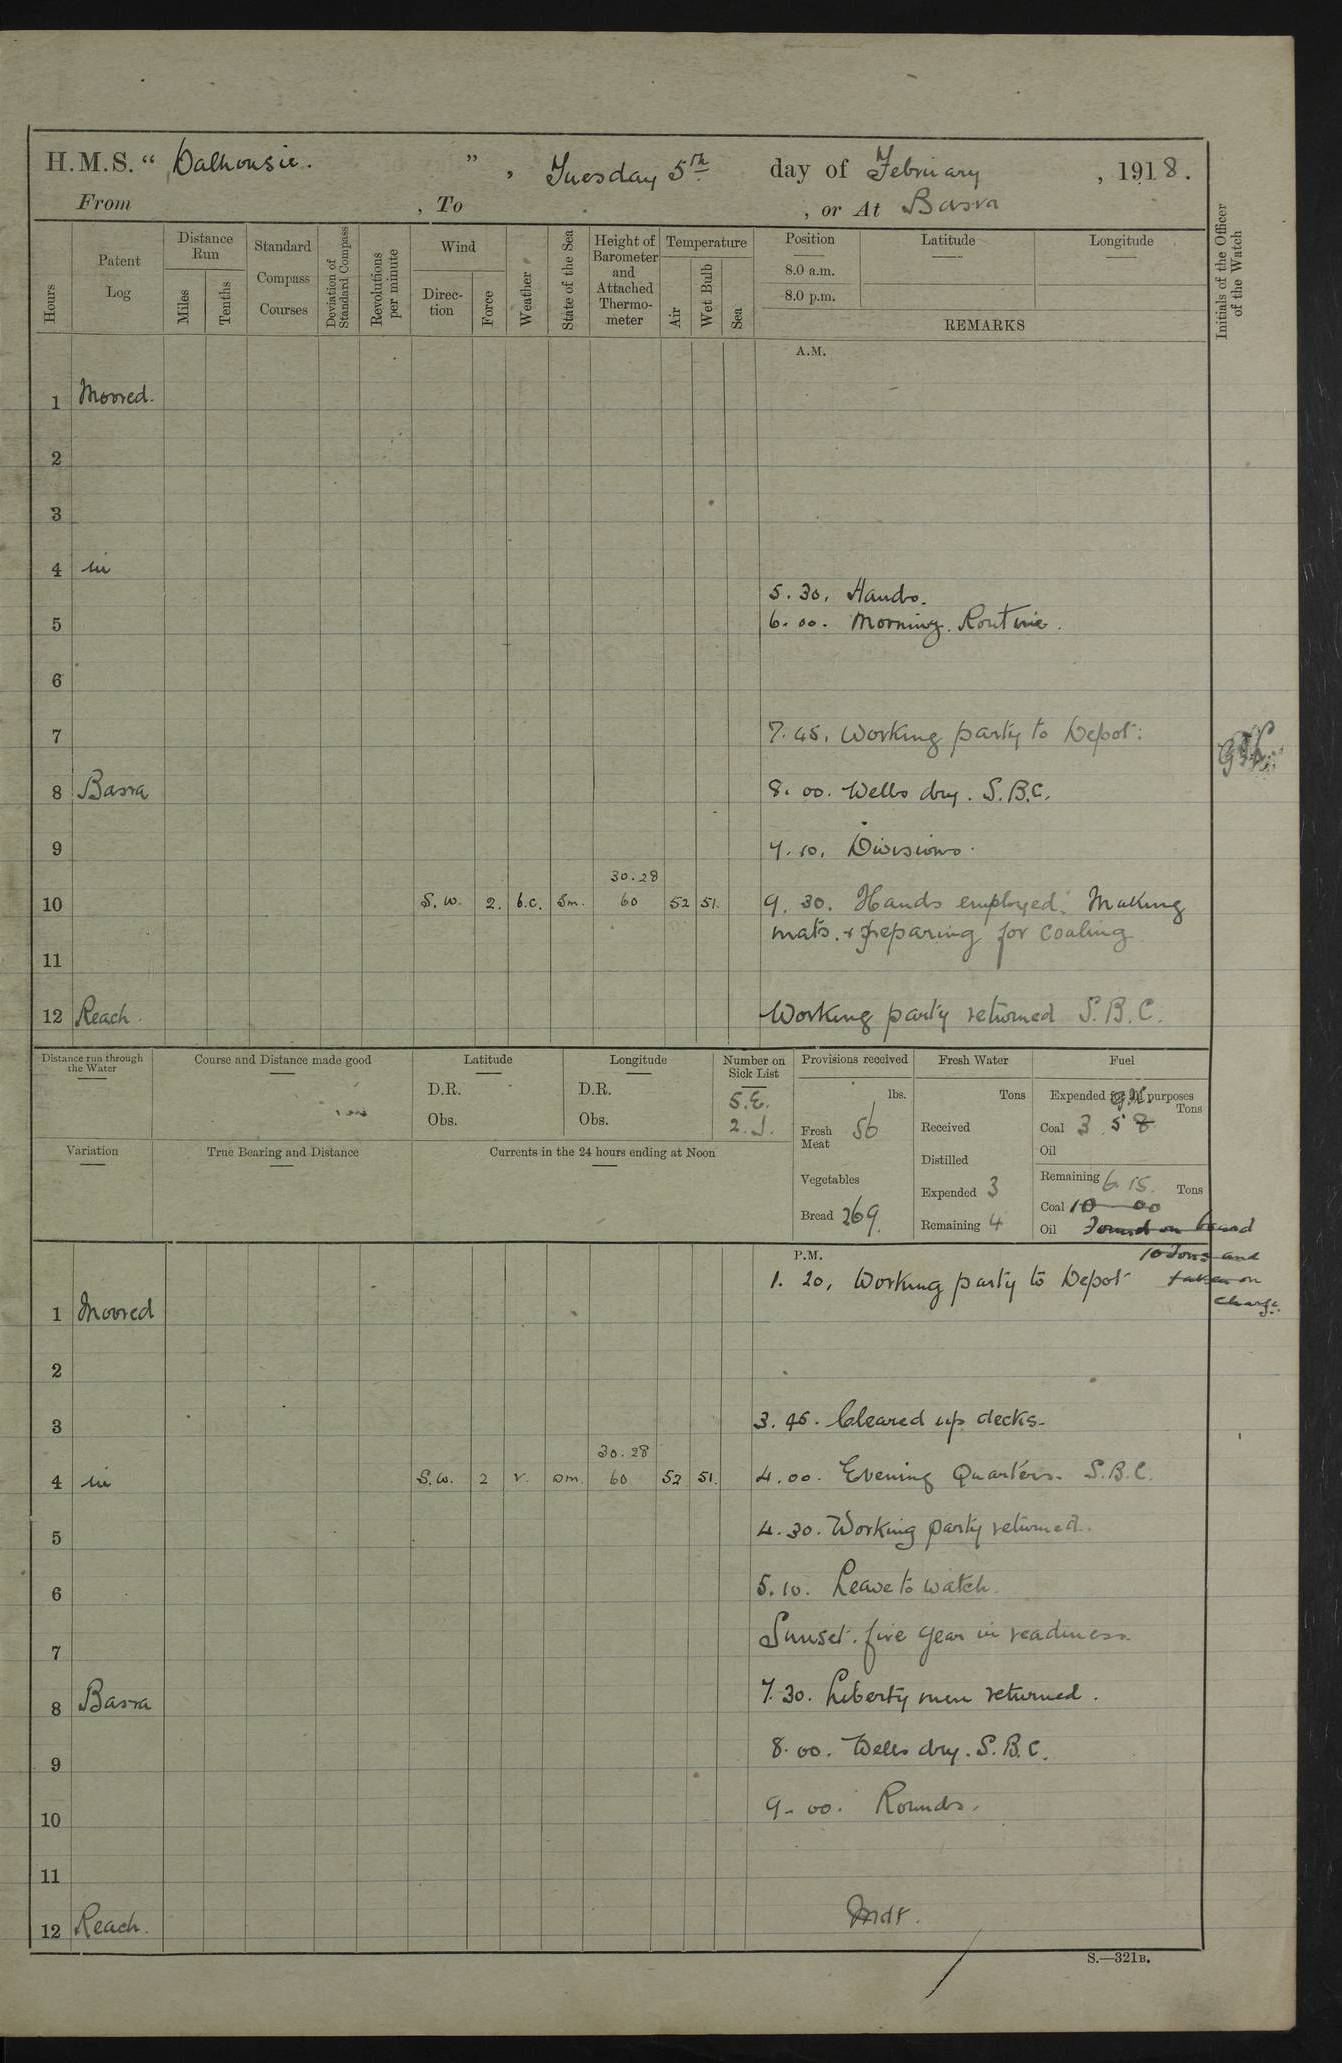 H.M.S. " Dalhousie. " , Tuesday 5th day of February , 1918.
From , To , or At Basra
Hours
Patent Log
Distance Run
Miles
Tenths
Standard Compass Courses
Deviation of Standard Compass
Revolutions per minute
Wind
Direction
Force
Weather
State of the Sea
Height of Barometer and Attached Thermometer
Temperature
Air
Wet Bulb
Sea
Position
8.0 a.m.
8.0 p.m.
Latitude
Longitude
REMARKS
Initials of the Officer of the Watch
A.M.
1 Moored.
2
3
4 in
5.30. Hands.
5 6.00. Morning Routine.
6
7 7.45. Working party to Depot.
8 Basra 8.00. Wells dry. S.B.C.
9 9.10. Divisions.
30.28
10 S.W. 2. b.c. Sm. 60 52 51. 9.30. Hands employed: Making
mats. & preparing for coaling
11
12 Reach. Working party returned S.B.C.
Distance run through the Water
Course and Distance made good
Latitude
D.R.
Obs.
Longitude
D.R.
Obs.
Number on Sick List
5.E.
2.I.
Variation
True Bearing and Distance
Currents in the 24 hours ending at Noon
Provisions received
lbs.
Fresh Meat 56
Vegetables
Bread 269.
Fresh Water
Tons
Received
Distilled
Expended 3
Remaining 4
Fuel
Expended for all purposes
Tons
Coal 3 . 5 8
Oil
Remaining 6.15. Tons
Coal 10 00
Oil Found on board
10 Tons and
taken on
charge.
P.M.
1.20. Working party to Depot
1 Moored
2
3 3.45. Cleared up decks.
30.28
4 in S.W. 2 Sm. 60 52 51. 4.00. Evening Quarters. S.B.C.
5 4.30. Working party returned.
6 5.10. Leave to watch.
7 Sunset. fire gear in readiness
8 Basra 7.30. Liberty men returned.
9 8.00. Wells dry. S.B.C.
10 9.00. Rounds.
11
12 Reach. Mdt.
S.—321B.